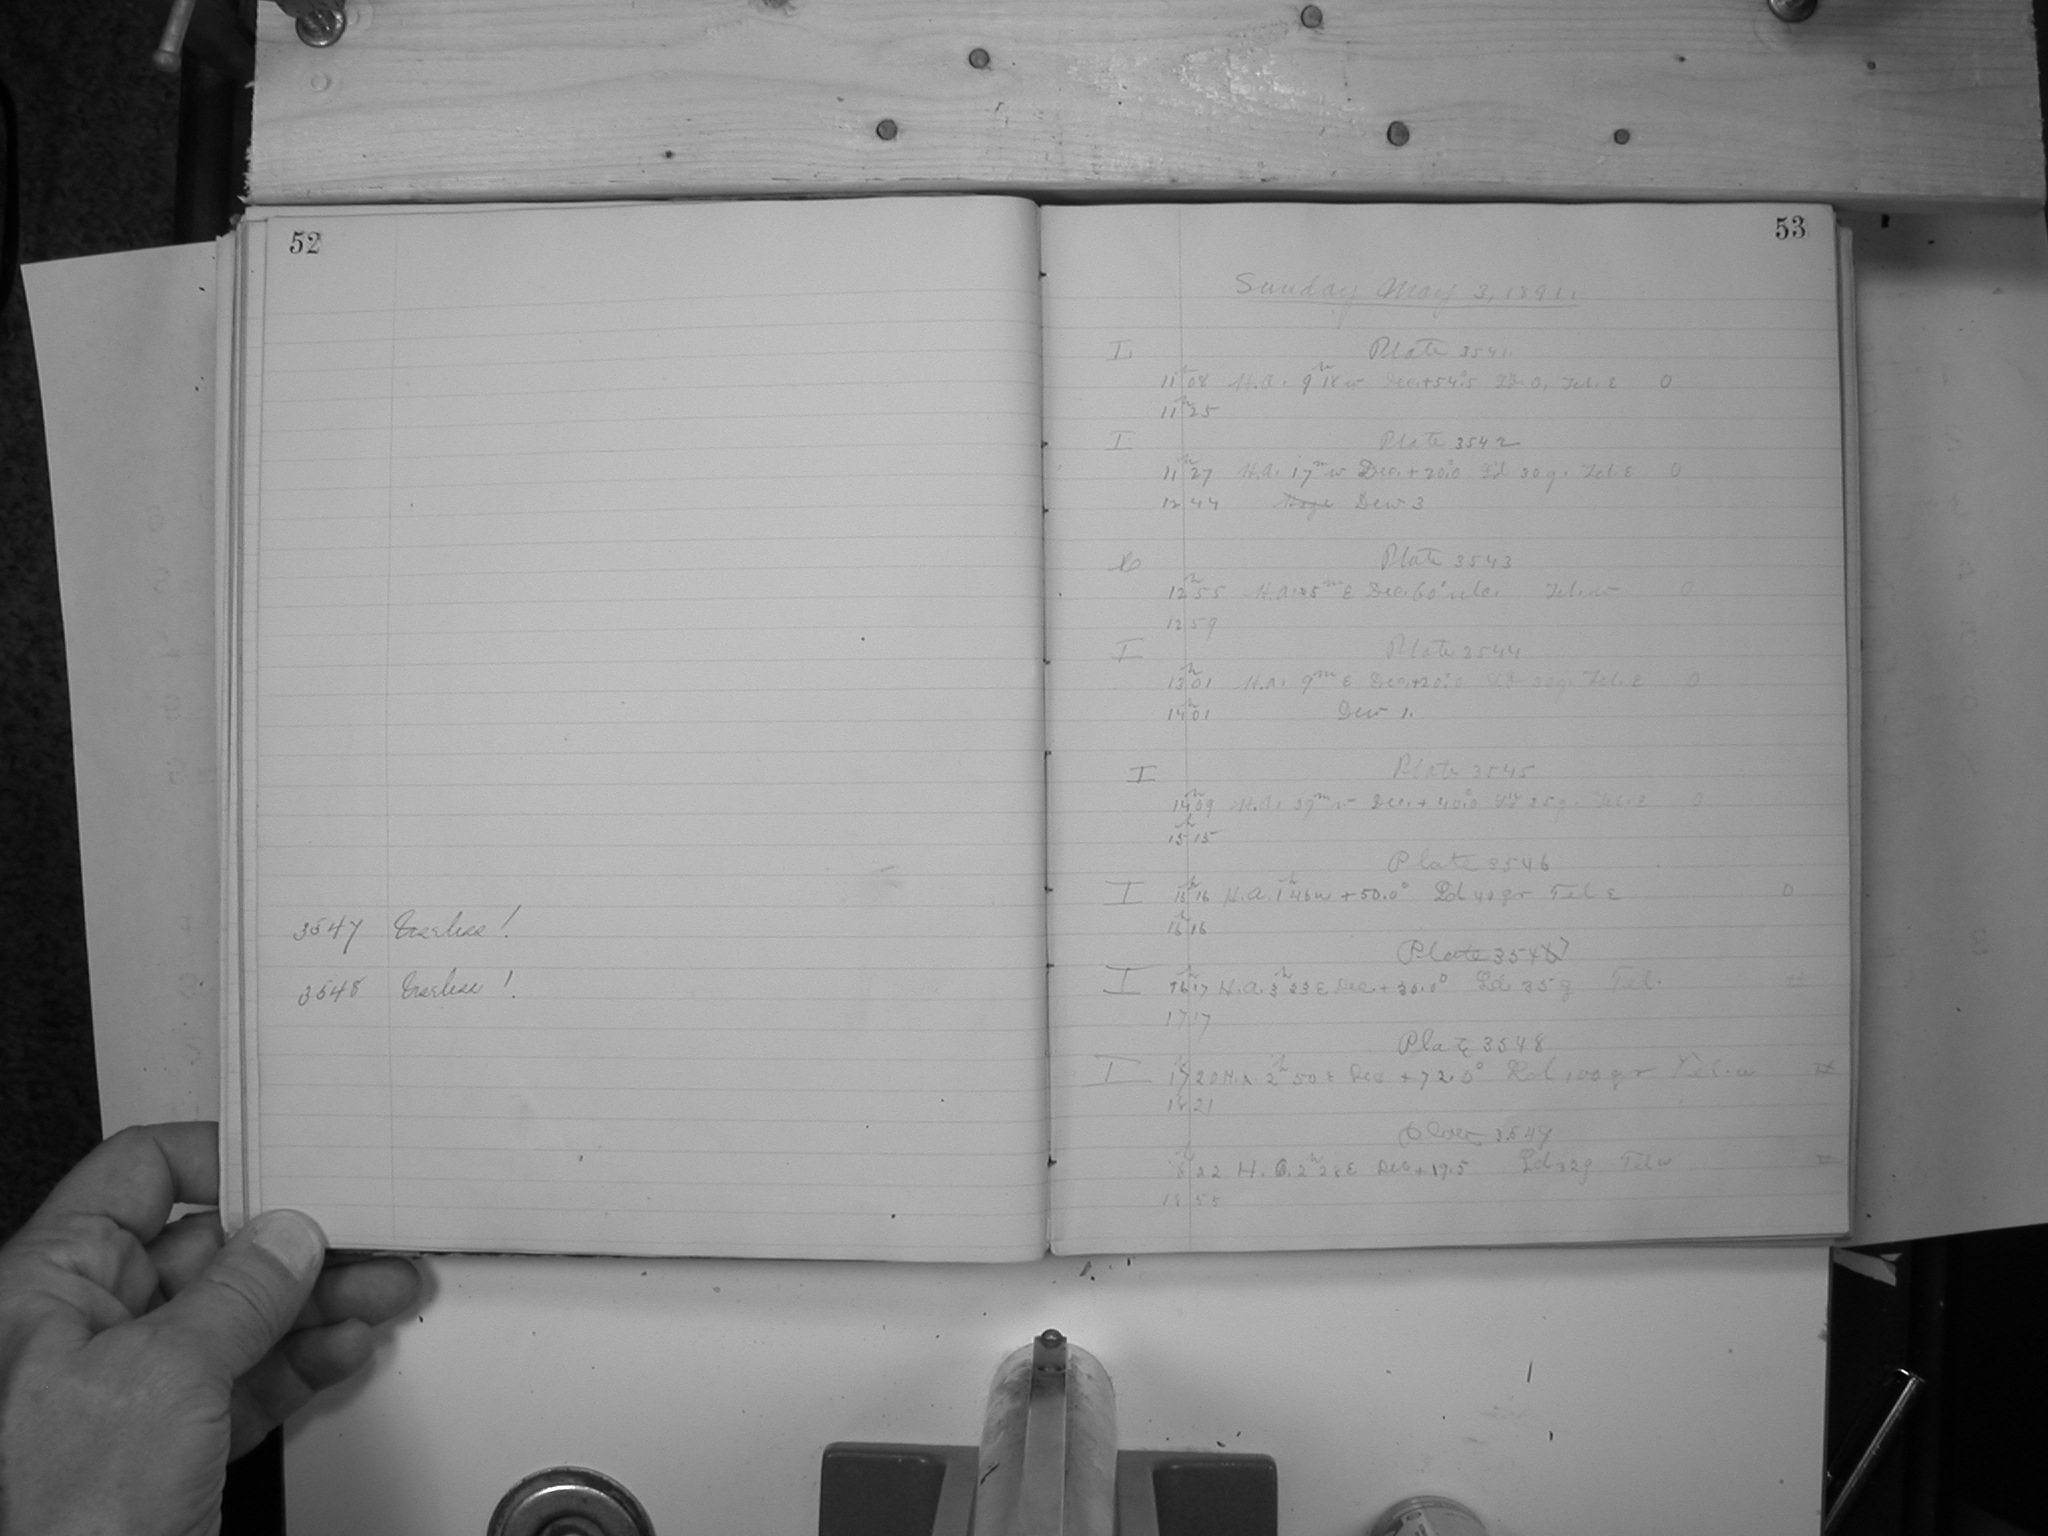 52
3547 Useless!
3548 Useless!
53
Sunday May 3, 1891.
I Plate 3541
11h 08 H.A. 9h 18 w Dec. +54.°5 Ld. 0, Tel. E 0
11h 25
I Plate 3542
11h 27 H.A. 17m w Dec. +20.°0 Ld 30g. Tel. E 0
12 44 Dew 3
Plate 3543
12h 55 H.A. 25m E Dec. 60° Tel. w 0
12 59
I Plate 3544
13h 01 H.A. 9m E Dec. +20.°0 Ld 30g. Tel. E 0
14h 01 Dew 1.
I Plate 3545
14h 09 H.A. 39m w Dec. +40.°0 Ld 35g. Tel. E 0
15h 15
Plate 3546
I 15h 16 H.A. 1h 46 w +50.0° Ld 40 gr Tel E 0
16h 16
Plate 3547
I 16h 17 H.A. 3h 23 E Dec. +30.0° Ld. 35g Tel.
17 17
Plate 3548
I 17h 20 H.A. 2h 50 E Dec +72.0° Ld 100 gr Tel. w
18 21
Plate 3549
18h 22 H.A. 2h 28 E Dec +19.5 Ld 32g Tel w
18 55